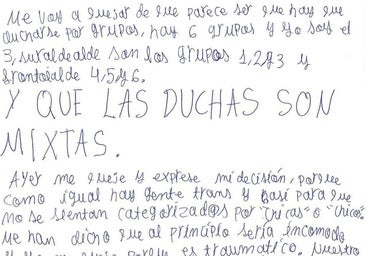 Me voy a quejar de que parece ser que hay que
ducharse por grupos, hay 6 grupos y yo soy el
3, suraldealde son los grupos 1, 2 y 3 y
frontalde 4, 5 y 6.
Y QUE LAS DUCHAS SON
MIXTAS.
Ayer me queje y exprese mi decisión, porque
como igual hay gente trans y hasi para que
no se sientan categorizad@s por "chicas" o "chicos".
Me han dicho que al principio sería incomodo
es traumatico. Nuestro